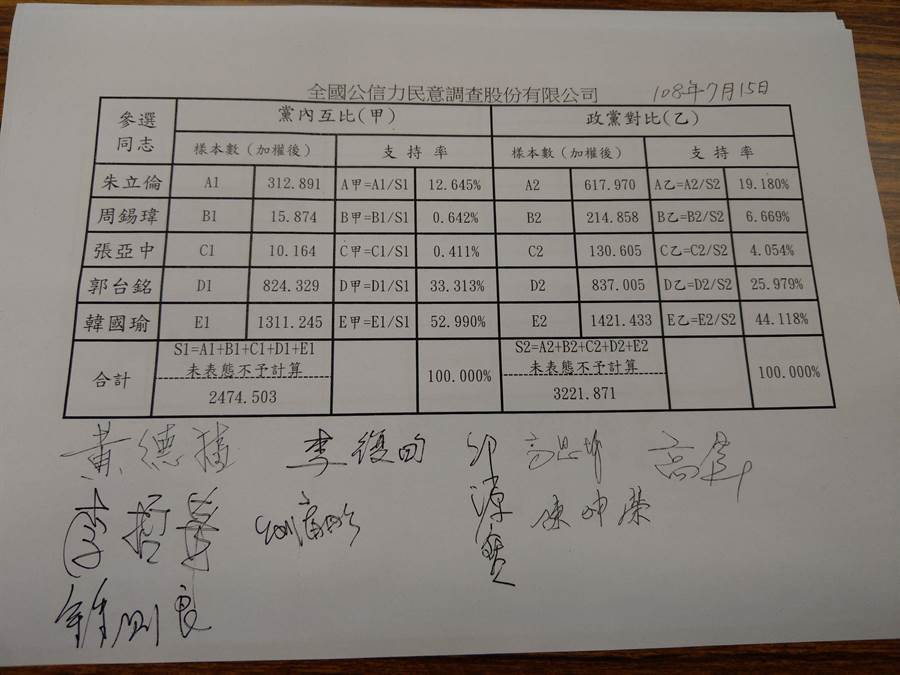 全國公信力民意調查股份有限公司 108年7月15日
參選同志 黨內互比(甲) 政黨對比(乙)
樣本數(加權後) 支持率 樣本數(加權後) 支持率
朱立倫 A1 312.891 A甲=A1/S1 12.645% A2 617.970 A乙=A2/S2 19.180%
周錫瑋 B1 15.874 B甲=B1/S1 0.642% B2 214.858 B乙=B2/S2 6.669%
張亞中 C1 10.164 C甲=C1/S1 0.411% C2 130.605 C乙=C2/S2 4.054%
郭台銘 D1 824.329 D甲=D1/S1 33.313% D2 837.005 D乙=D2/S2 25.979%
韓國瑜 E1 1311.245 E甲=E1/S1 52.990% E2 1421.433 E乙=E2/S2 44.118%
合計 S1=A1+B1+C1+D1+E1 100.000% S2=A2+B2+C2+D2+E2 100.000%
未表態不予計算 未表態不予計算
2474.503 3221.871
黃德 李復甸
李哲華